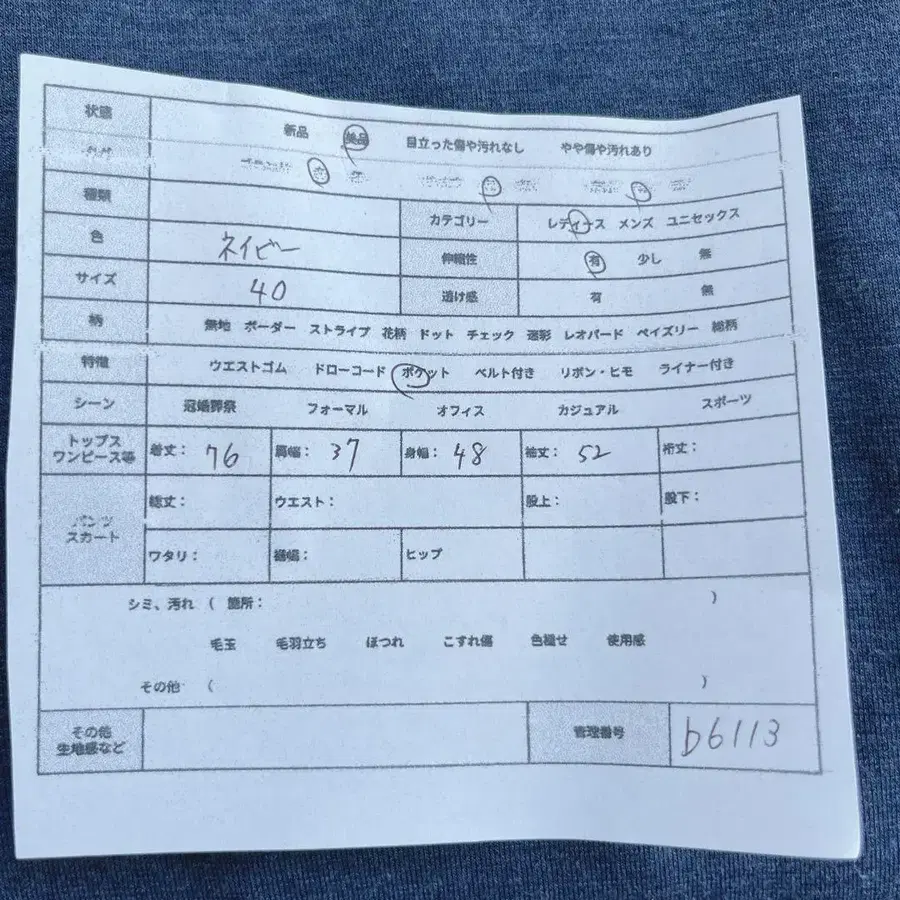 状態 新品 美品 目立った傷や汚れなし やや傷や汚れあり
種類 カテゴリー レディース メンズ ユニセックス
色 ネイビー 伸縮性 有 少し 無
サイズ 40 透け感 有 無
柄 無地 ボーダー ストライプ 花柄 ドット チェック 迷彩 レオパード ペイズリー 総柄
特徴 ウエストゴム ドローコード ポケット ベルト付き リボン・ヒモ ライナー付き
シーン 冠婚葬祭 フォーマル オフィス カジュアル スポーツ
トップス
ワンピース等 着丈: 76 肩幅: 37 身幅: 48 袖丈: 52 裄丈:
総丈: ウエスト: 股上: 股下:
パンツ
スカート
ワタリ: 裾幅: ヒップ
シミ、汚れ ( 箇所: )
毛玉 毛羽立ち ほつれ こすれ傷 色褪せ 使用感
その他 ( )
その他
生地感など 管理番号 b6113